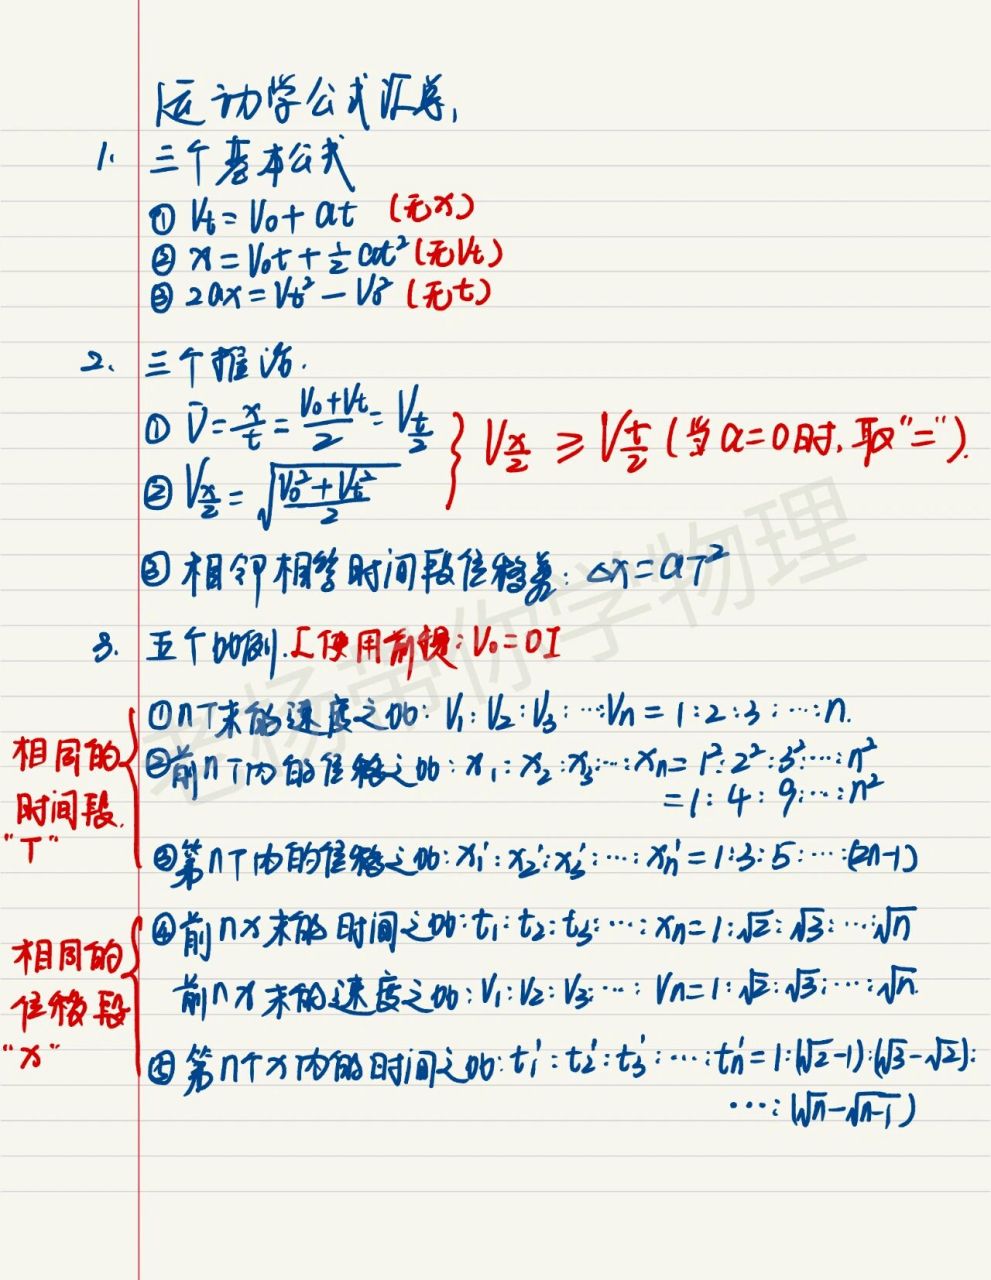 运动学公式汇总,
1. 三个基本公式
① Vt = V0 + at (无x)
② x = V0t + 1/2 at² (无Vt)
③ 2ax = Vt² - V0² (无t)
2、三个推论.
① V̄ = x/t = (V0+Vt)/2 = V t/2
② V x/2 = √((V0²+Vt²)/2)
} V x/2 ≥ V t/2 (当a=0时,取"=").
③ 相邻相等时间段位移差: △x = aT²
3. 五个比例.[使用前提: V0=0]
相同的时间段.
"T"
① nT末的速度之比: V1:V2:V3:…:Vn = 1:2:3:…:n.
② 前nT内的位移之比: x1:x2:x3:…:xn = 1²:2²:3²:…:n²
= 1:4:9:…:n²
③ 第nT内的位移之比: x1':x2':x3':…:xn' = 1:3:5:…:(2n-1)
相同的位移段
"x"
④ 前nx末的时间之比: t1:t2:t3:…:xn = 1:√2:√3:…:√n
前nx末的速度之比: V1:V2:V3:…:Vn = 1:√2:√3:…:√n.
⑤ 第n个x内的时间之比: t1':t2':t3':…:tn' = 1:(√2-1):(√3-√2):
…:(√n-√n-1)
老杨带你学物理